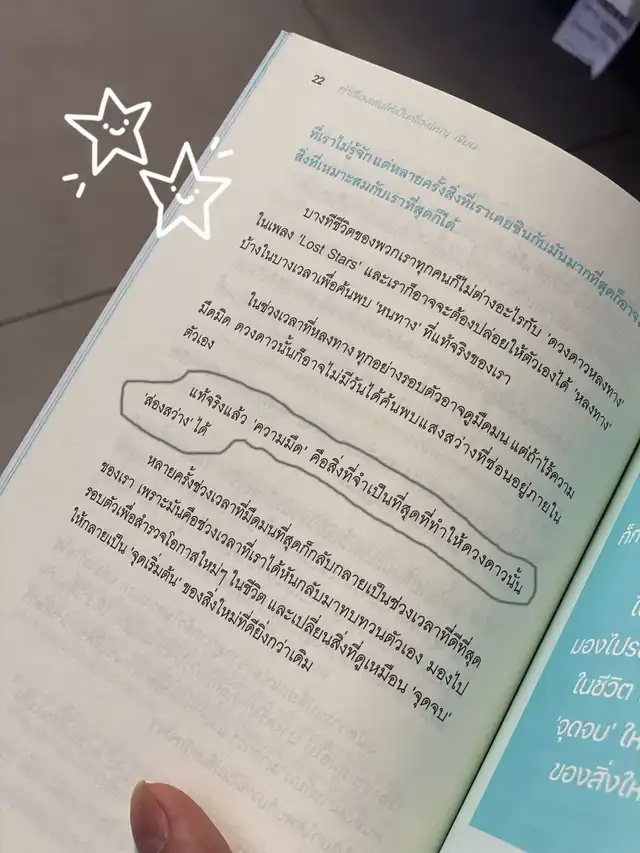 22
ที่เราไม่รู้จัก แต่หลายครั้งสิ่งที่เราเคยชินกับมันมากที่สุดก็อาจ
สิ่งที่เหมาะสมกับเราที่สุดก็ได้
บางทีชีวิตของพวกเราทุกคนก็ไม่ต่างอะไรกับ 'ดวงดาวหลงทาง'
ในเพลง 'Lost Stars' และเราก็อาจจะต้องปล่อยให้ตัวเองได้ 'หลงทาง'
บ้างในบางเวลาเพื่อค้นพบ 'หนทาง' ที่แท้จริงของเรา
ในช่วงเวลาที่หลงทาง ทุกอย่างรอบตัวอาจดูมืดมน แต่ถ้าไร้ความ
มืดมิด ดวงดาวนั้นก็อาจไม่มีวันได้ค้นพบแสงสว่างที่ซ่อนอยู่ภายใน
ตัวเอง
แท้จริงแล้ว 'ความมืด' คือสิ่งที่จำเป็นที่สุดที่ทำให้ดวงดาวนั้น
'ส่องสว่าง' ได้
หลายครั้งช่วงเวลาที่มืดมนที่สุดก็กลับกลายเป็นช่วงเวลาที่ดีที่สุด
ของเรา เพราะมันคือช่วงเวลาที่เราได้หันกลับมาทบทวนตัวเอง มองไป
รอบตัวเพื่อสำรวจโอกาสใหม่ๆ ในชีวิต และเปลี่ยนสิ่งที่ดูเหมือน 'จุดจบ'
ให้กลายเป็น 'จุดเริ่มต้น' ของสิ่งใหม่ที่ดียิ่งกว่าเดิม
มองไปรอ
ในชีวิต
'จุดจบ' ให
ของสิ่งให